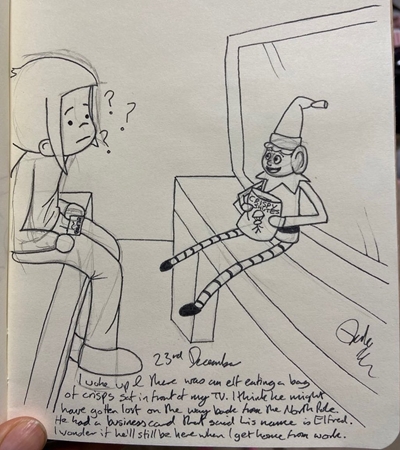 CRISPY
23rd December
I woke up & there was an elf eating a bag
of crisps sat in front of my TV. I think he might
have gotten lost on the way back from the North Pole.
He had a business card that said his name is Elfred.
I wonder if he'll still be here when I get home from work.